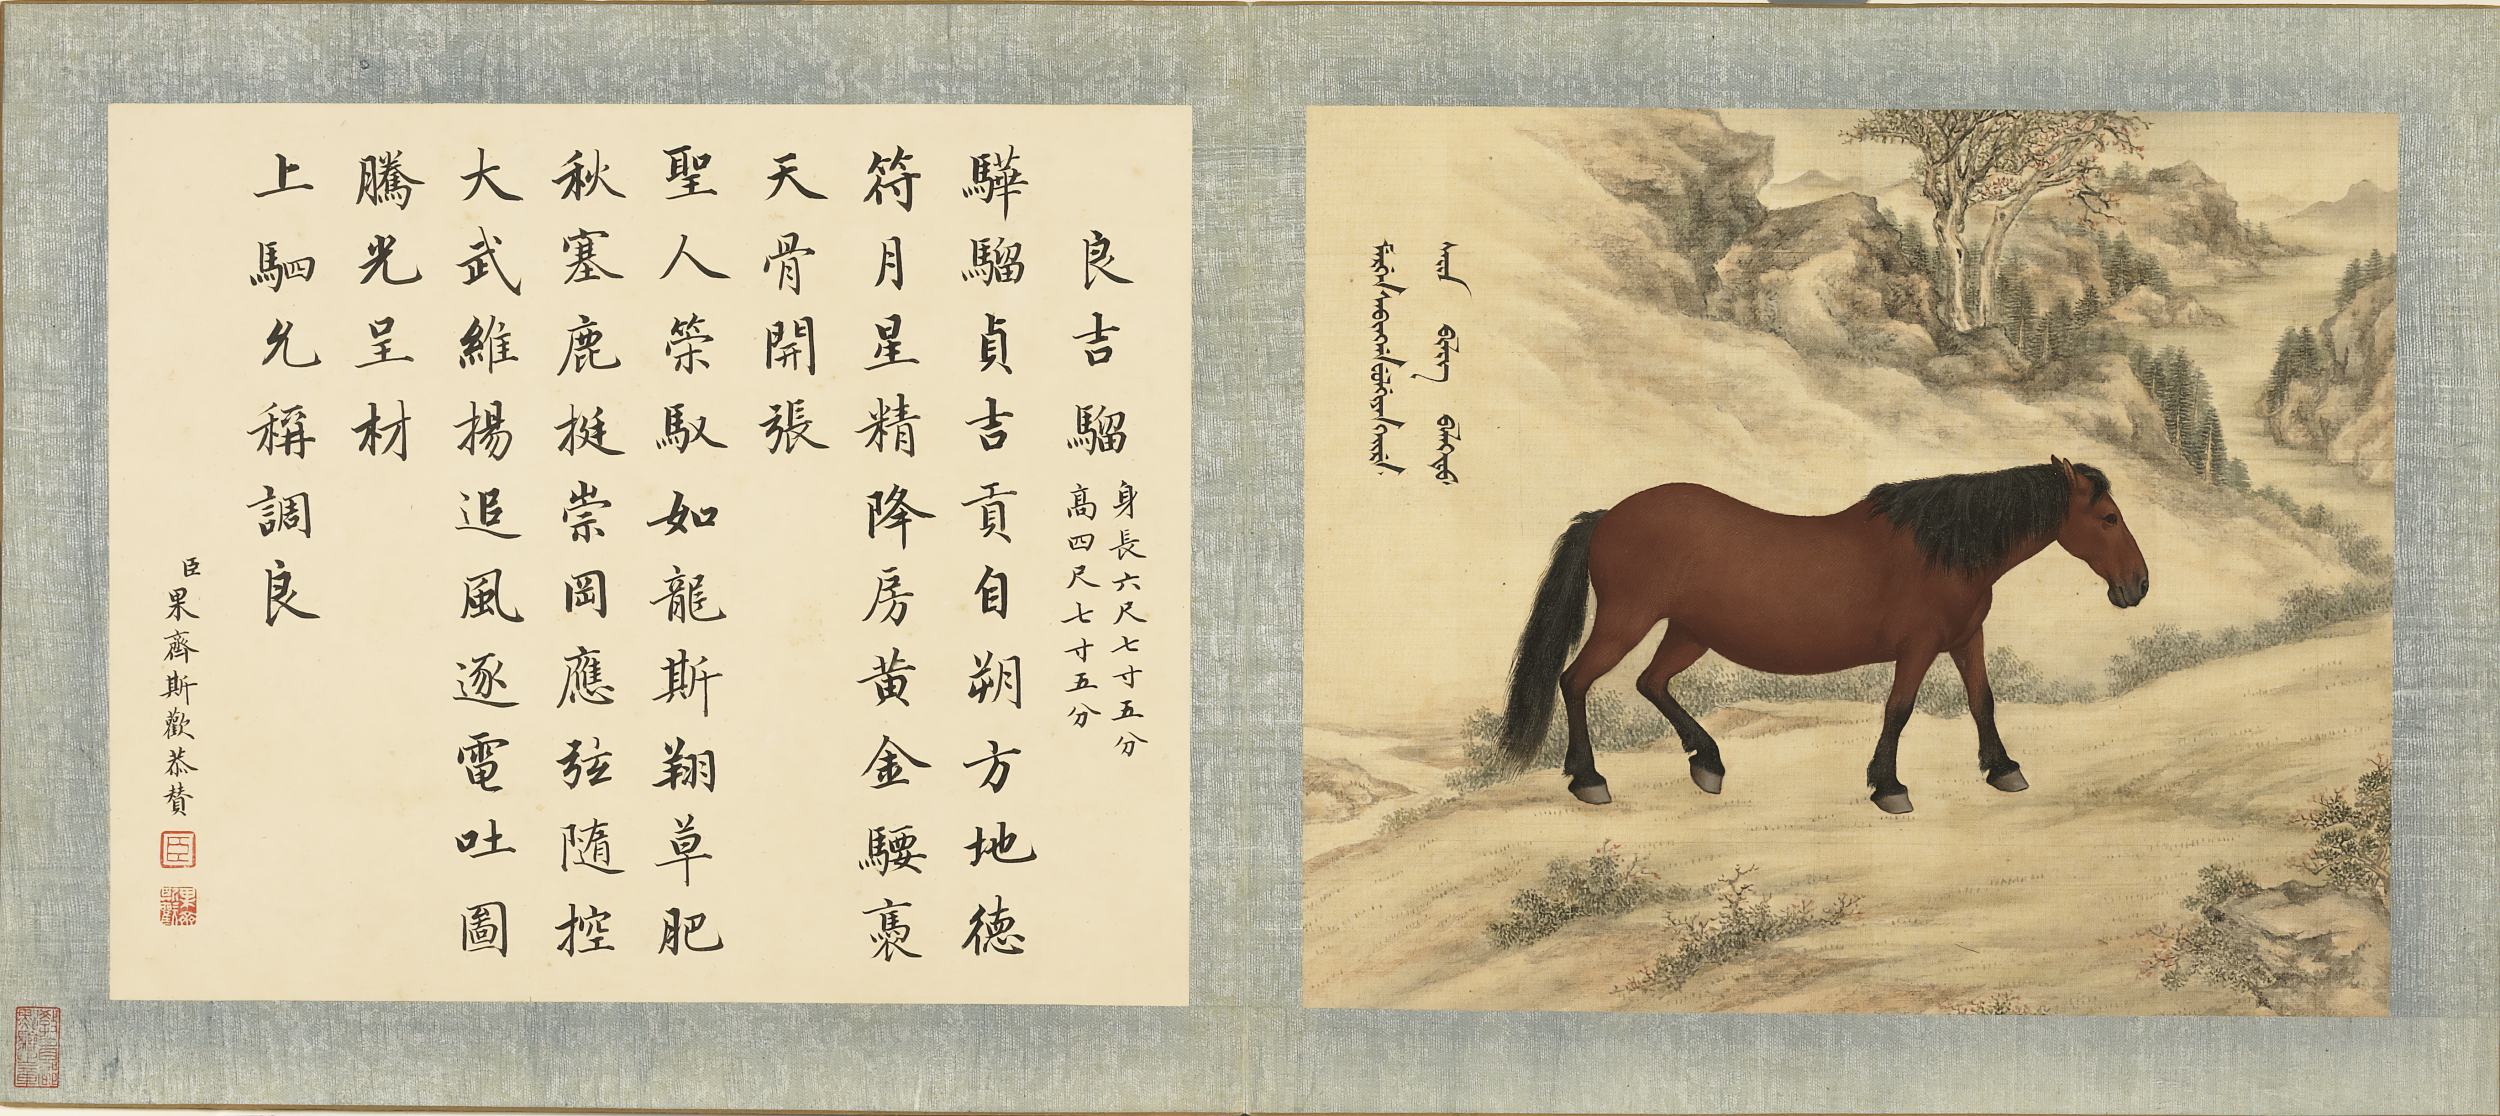 良吉騮
身長六尺七寸五分
高四尺七寸五分
驊騮貞吉貢自朔方地德
符月星精降房黄金騕褭
天骨開張
聖人筞馭如龍斯翔草肥
秋塞鹿挺崇岡應弦隨控
大武維揚追風逐電吐圖
騰光呈材
上駟允稱調良
臣果齊斯歡恭賛
臣